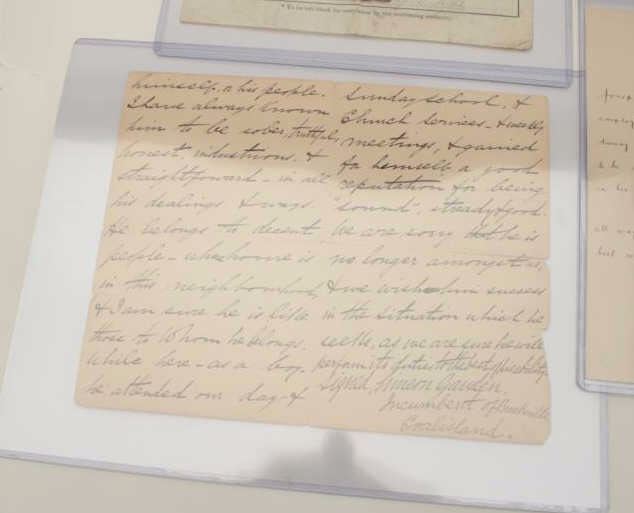 himself, & his people.
I have always known
him to be sober, truthful,
honest, industrious, &
straightforward - in all
his dealings & ways.
He belongs to decent
people - whose home is
in this neighbourhood,
& I am sure he is like
those to whom he belongs.
While here - as a boy -
he attended our day- &
Sunday school, &
Church Services - & weekly
meetings, & gained
for himself a good
reputation for being
"sound", steady & good.
We are sorry that he is
no longer amongst us,
& we wish him success
in the situation which he
seeks, as we are sure he will
perform its duties to the best of his ability.
Signed,
Incumbent of
Coalisland.